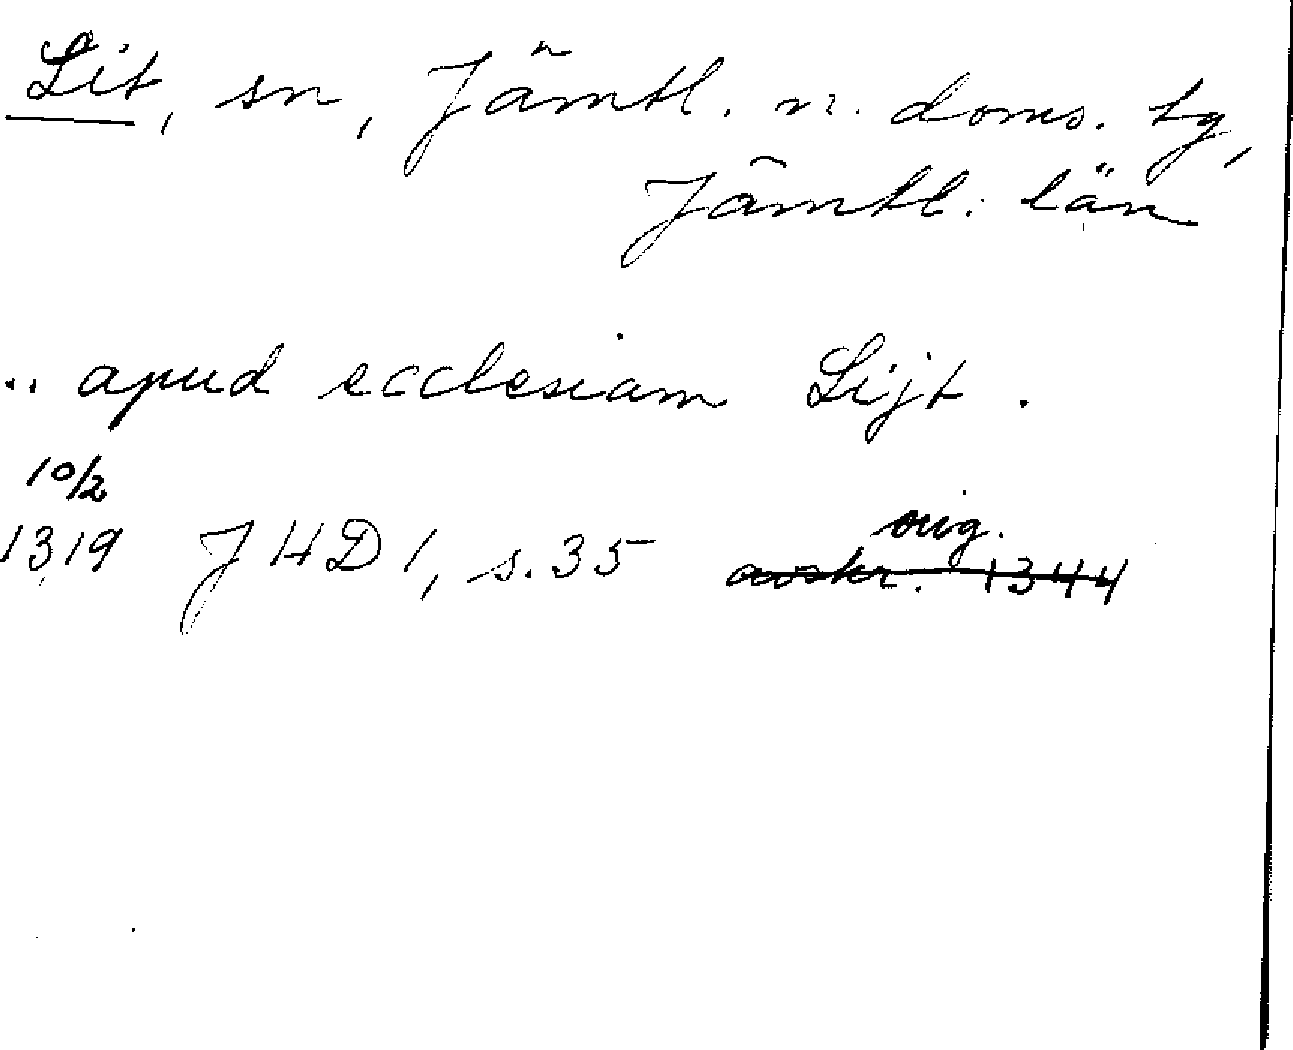 Lit, sn, Jämtl. n. doms. tg,
Jämtl. län
.. apud ecclesiam Lijt.
10/2
1319 JHD 1, s. 35 orig.
avskr. 1344